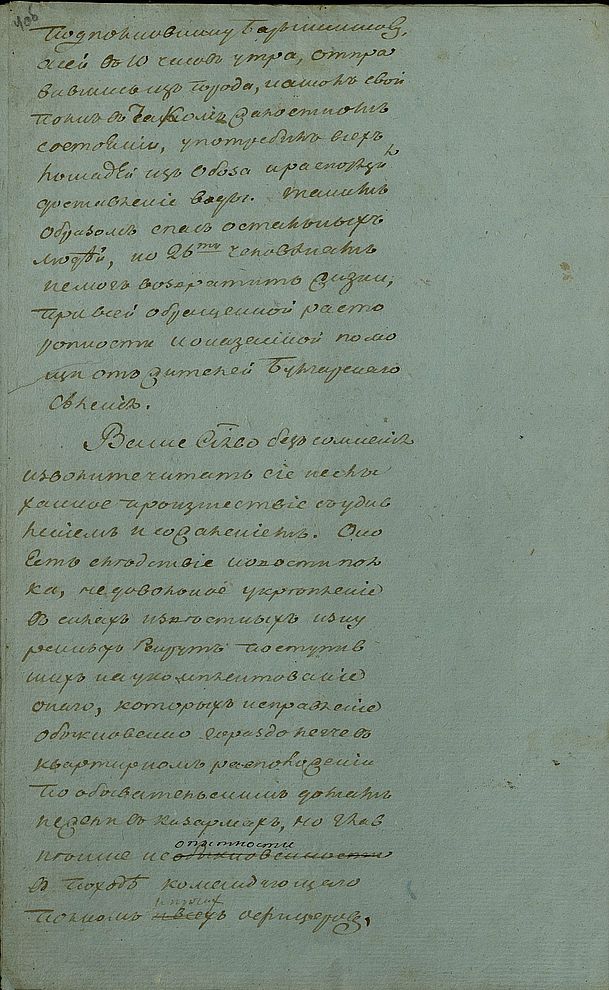 406
Подполковнику Барышников,
а сей въ 10 часовъ утра, отпра
вившись изъ города, нашолъ свой
полкъ въ такомъ жалостномъ
состоянии, употребилъ всехъ
лошадей изъ обоза и распоряж
доставление воды. такимъ
образомъ спасъ остальныхъ
людей, но 26ти человекамъ
не могъ возвратить жизни,
при всей обращенной расто
ропности и оказанной помо
щи отъ жителей Булгарскаго
селения.
Ваше Ство безъ сомнения
изволите читать сие неслы
ханное произшествие съ удив
лениемъ и сожалениемъ. Оно
есть следствие новости пол
ка, недовольное укрепление
въ силахъ изну
ренныхъ Рекрутъ поступив
шихъ на укомплектование
онаго, которыхъ исправление
обыкновенно гораздо легче въ
квартирномъ расположении
по обывательскимъ домамъ
нежели въ казармахъ, но глав
нейшее неопытности
обыкновенности
въ походе командующаго
полкомъ и прочихъ
и всехъ офицеров,